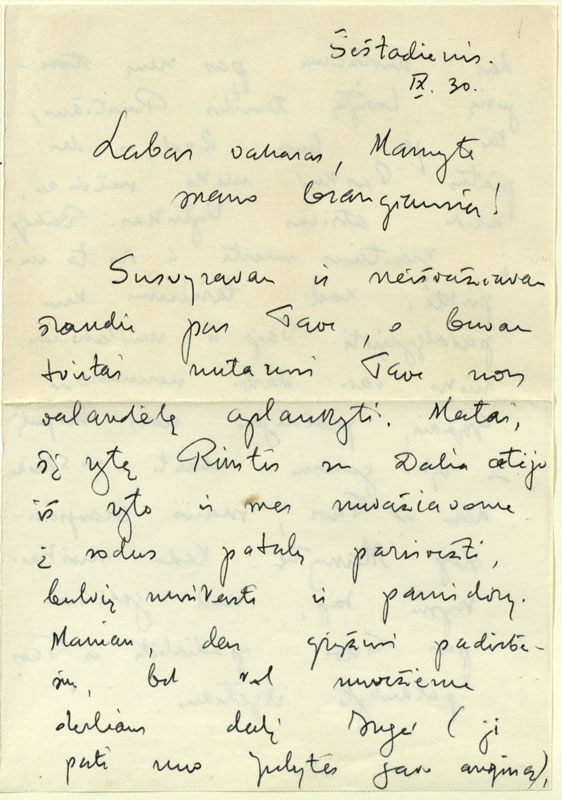 Šeštadienis.
IX. 30.
Labas vakaras, Mamyte
mano brangiausia!
Susvyravau ir neišvažiavau
šiandie pas Tave, o buvau
tvirtai nutarusi Tave nors
valandėlę aplankyti. Matai,
šį rytą Rimtis su Dalia atėjo
iš ryto ir mes nuvažiavome
į sodus patalų parsivežti,
bulvių nusikasti ir pamidorų.
Maniau, dar grįžusi padirbė-
siu, bet vėl nuvežėme
derliaus dalį Dugė (ji
pati nuo Julytės gavo anginą),